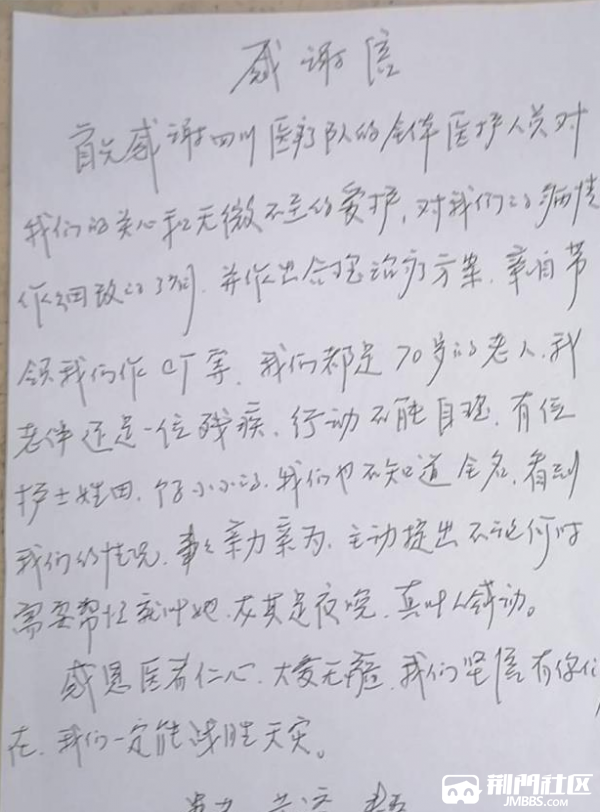 感谢信
首先感谢四川医疗队的全体医护人员对
我们的关心和无微不至的爱护，对我们的病情
作细致的了解，并作出合理治疗方案，亲自带
领我们作CT等，我们都是70岁的老人，我
老伴还是一位残疾，行动不能自理，有位
护士姓田，个子小小的，我们也不知道全名，看到
我们的情况，事事亲力亲为，主动提出不论何时
需要帮忙就叫她，尤其是夜晚，真叫人感动。
感恩医者仁心，大爱无疆，我们坚信有你们
在，我们一定能战胜天灾。
荆門社区
JMBBS.COM